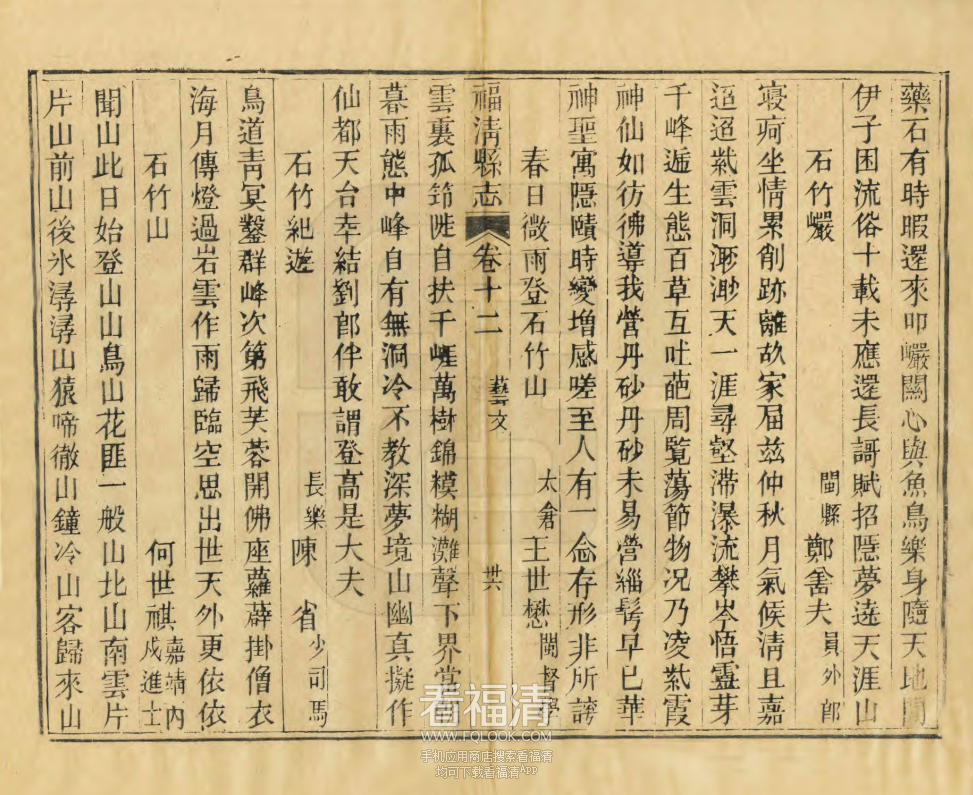 藥石有時暇還來叩巖關心與魚鳥樂身隨天地間
伊子困流俗十載未應還長謌賦招隱夢遶天涯山
石竹巖 閩縣 鄭善夫 員外郎
寝疴坐情累削跡離故家屆兹仲秋月氣候淸且嘉
迢迢紫雲洞渺渺天一涯尋壑滯瀑流攀岑悟靈芽
千峰遞生態百草互吐葩周覽蕩節物况乃凌紫霞
神仙如彷彿導我營丹砂丹砂未易營緇髩早已華
神聖寓隱賾時變增感嗟至人有一念存形非所誇
春日微雨登石竹山 太倉 王世懋 閩督學
福淸縣志 卷十二 藝文 卅六
雲裏孤筇陡自扶千崕萬樹錦模糊灘聲下界
暮雨態中峰自有無洞冷不教深夢境山幽真擬作
仙都天台幸結劉郎伴敢謂登高是大夫
石竹紀遊 長樂 陳省 少司馬
鳥道靑冥鑿群峰次第飛芙蓉開佛座蘿薜掛僧衣
海月傳燈過岩雲作雨歸臨空思出世天外更依依
石竹山 何世祺 嘉靖丙戍進士
聞山此日始登山山鳥山花匪一般山北山南雲片
片山前山後水潺潺山猿啼徹山鐘冷山客歸來山
看福清
WWW.FQLOOK.COM
手机应用商店搜索看福清
均可下载看福清APP